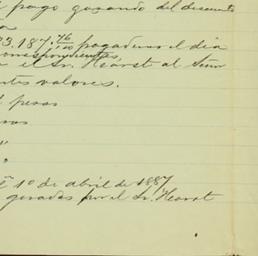 pago gozando del descuento
a
23.187.76/100 pagaderos el dia
correspondientes,
el Sr. Hearst al Señor
ntes valores.
pesos
"
"
1º de abril de 1887
giradas por el Sr. Hearst